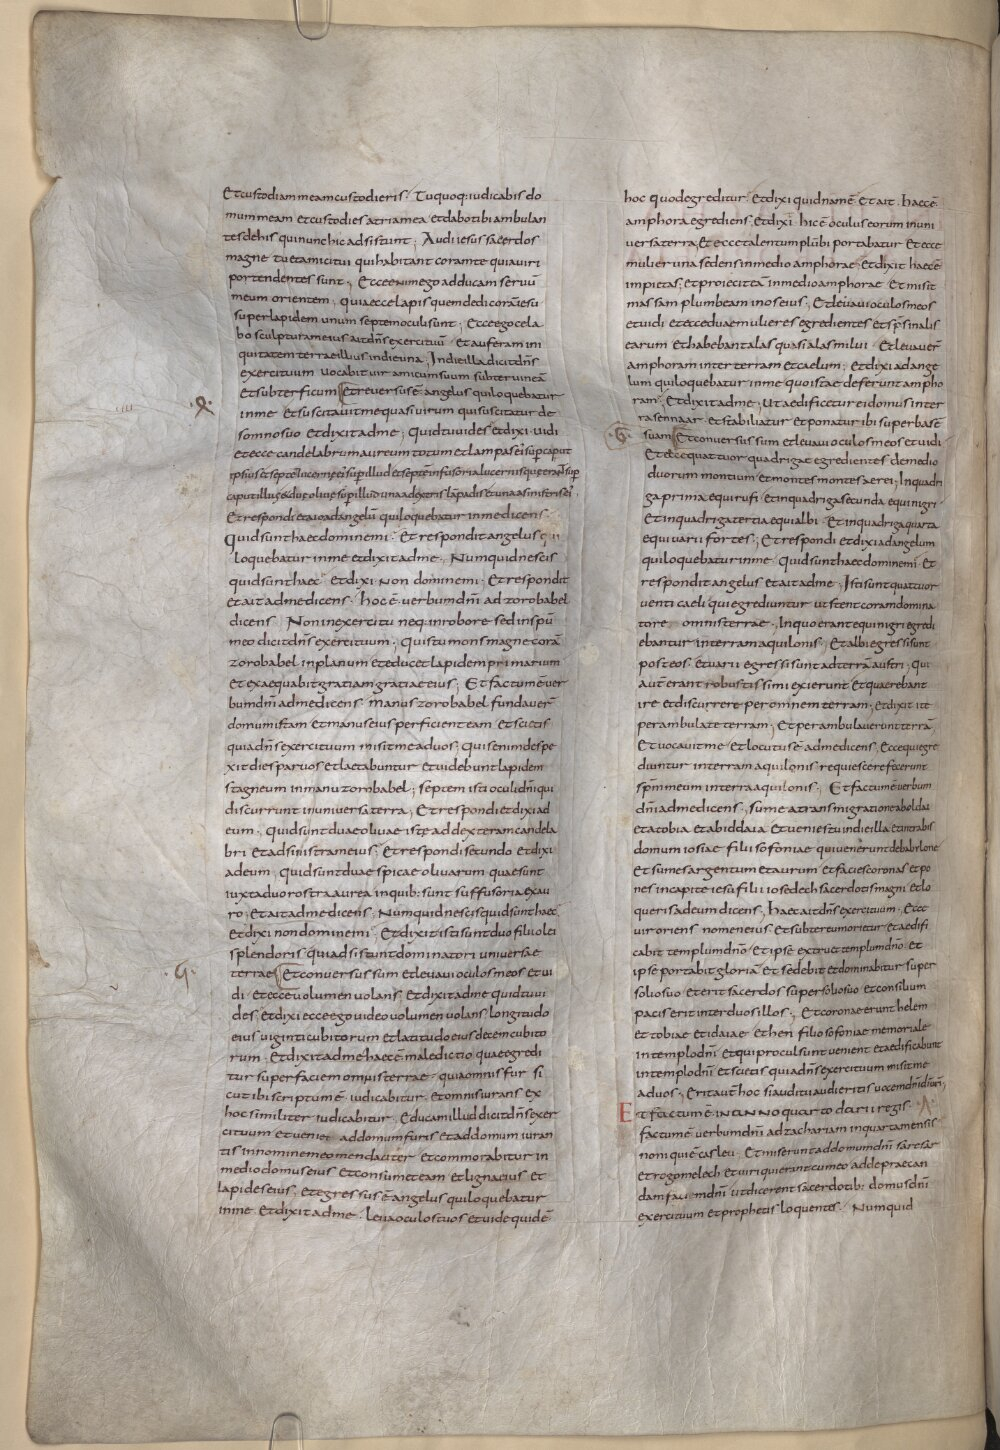 Et custodiam meam custodieris. Tu quoq; iudicabis do
mum meam et custodies atria mea et dabo tibi ambulan
tes de his qui nunc hic adsistunt; Audi iesus sacerdos
magne tu et amici tui qui habitant coram te quia viri
portendentes sunt; Ecce enim ego adducam servū
meum orientem; quia ecce lapis quem dedi corā iesu
super lapidem unum septem oculi sunt; Ecce ego cela
bo sculpturam eius ait dn̄s exercituū Et auferam ini
quitatem terrae illius in die una; In die illa dicit dn̄s
exercituum vocabit vir amicum suum subter vineā
Et subter ficum Et reversus ē angelus qui loquebatur
in me et suscitavit me quasi virum qui suscitatur de
somno suo et dixit ad me; Quid tu vides et dixi. vidi
et ecce candelabrum aureum totum et lampas ei sup caput
ipsius et septē lucernę ei sup illud et septem infusoria lucernis quę erant sup
caput illius et duę olivę sup illud una a dextris lāpadis et una a sinistris ei.
Et respondi et aio ad angelū qui loquebatur in me dicens.
Quid sunt haec domine mi. Et respondit angelus qui
loquebatur in me et dixit ad me. Numquid nescis
quid sunt haec et dixi non domine mi. Et respondit
et ait ad me dicens. hoc ē verbum dn̄i ad zorobabel
dicens Non in exercitu neq. in robore sed in spū
meo dicit dn̄s exercituum. Quis tu mons magne corā
zorobabel in planum et educet lapidem primarium
et exaequabit gratiam gratiae eius; Et factum ē ver
bum dn̄i ad me dicens. Manus zorobabel fundaver̄
domum istam et manus eius perficient eam et scietis
quia dn̄s exercituum misit me ad vos; Qui s enim despe
xit dies parvos et laetabuntur et videbunt lapidem
stagneum in manu zorobabel; septem isti oculi dn̄i qui
discurrunt in universa terra; Et respondi et dixi ad
eum; Quid sunt duae olivae istę ad dexteram candela
bri et ad sinistram eius; Et respondi secundo et dixi
ad eum; Quid sunt duae spicae olivarum quae sunt
iuxta duo rostra aurea in quib: sunt suffusoria ex au
ro; Et ait ad me dicens; Numquid nescis quid sunt haec
et dixi non domine mi Et dixit isti sunt duo filii olei
splendoris qui adsistunt dominatori universae
terrae Et conversus sum et levavi oculos meos et vi
di et ecce volumen volans Et dixit ad me quid tu vi
des; Et dixi ecce ego video volumen volans longitudo
eius viginti cubitorum et latitudo eius decem cubito
rum; Et dixit ad me haec ē maledictio quae egredi
tur super faciem omnis terrae quia omnis fur si
cut ibi scriptum ē iudicabitur et omnis iurans ex
hoc similiter iudicabitur; Educam illud dicit dn̄s exer
cituum et veniet ad domum furis et ad domum iuran
tis in nomine meo mendaciter et commorabitur in
medio domus eius et consumet eam et ligna eius et
lapides eius; et egressus ē angelus qui loquebatur
in me et dixit ad me. Leva oculos tuos et vide quid ē
hoc quod egreditur et dixi quid nam ē Et ait. haec ē
amphora egrediens. Et dixi hic ē oculus eorum in uni
versa terra Et ecce talentum plūbi portabatur Et ecce
mulier una sedens in medio amphorae Et dixit haec ē
impietas Et proiecit eā in medio amphorae Et misit
massam plumbeam in os eius; Et levavi oculos meos
et vidi et ecce duae mulieres egredientes et sp̄s in alis
earum et habebant alas quasi alas milui Et levaver̄
amphoram inter terram et caelum; et dixi ad ange
lum qui loquebatur in me quo istae deferunt ampho
ram; Et dixit ad me; Ut aedificetur ei domus in ter
ra sennaar et stabiliatur et ponatur ibi super basē
suam Et conversus sum et levavi oculos meos et vidi
Et ecce quattuor quadrigae egredientes de medio
duorum montium et montes montes aerei; In quadri
ga prima equi rufi et in quadriga secunda equi nigri
Et in quadriga tertia equi albi Et in quadriga quarta
equi varii fortes; Et respondi et dixi ad angelum
qui loquebatur in me Quid sunt haec domine mi Et
respondit angelus et ait ad me; Isti sunt quattuor
venti caeli qui egrediuntur ut stent coram domina
tore omnis terrae; In quo erant equi nigri egredi
ebantur in terram aquilonis; Et albi egressi sunt
post eos. et varii egressi sunt ad terrā austri; Qui
aut̄ erant robustissimi exierunt Et quaerebant
ire et discurrere per omnem terram; et dixit ite
perambulate terram; Et perambulaverunt terrā
Et vocavit me et locutus ē ad me dicens; Ecce qui egre
diuntur in terram aquilonis requiescere fecerunt
sp̄m meum in terra aquilonis; Et factum ē verbum
dn̄i ad me dicens; sume a transmigratione ab oldai
et a tobia et ab iddaia et venies tu in die illa et intrabis
domum iosiae filii sofoniae qui venerunt de babilone
Et sumes argentum et aurum et facies coronas et po
nes in capite iesu filii iosedech sacerdotis magni et lo
queris ad eum dicens; haec ait dn̄s exercituum; Ecce
vir oriens nomen eius et subter eum orietur et aedifi
cabit templum dn̄o Et ipse extruet templum dn̄o et
ipse portabit gloriā Et sedebit et dominabitur super
solio suo et erit sacerdos super solio suo et consilium
pacis erit inter duos illos; Et coronae erunt helem
et tobiae et idaiae et hen filio sofoniae memoriale
in templo dn̄i et qui procul sunt venient et aedificabunt
in templo dn̄i et scietis quia dn̄s exercituum misit me
ad vos; Erit aut̄ hoc si auditu audieritis vocem dn̄i dī vr̄i;
Et factum ē IN ANNO quarto darii regis
factum ē verbum dn̄i ad zachariam in quarta mensis
noni qui ē casleu; Et miserunt ad domum dn̄i sarasar
et rogomelech et viri qui erant cum eo ad deprecan
dam faciem dn̄i ut dicerent sacerdotib: domus dn̄i
exercituum et prophetis loquentes; Numquid